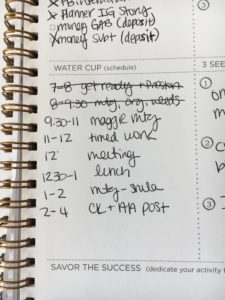 x Planner IG Story
money GAB (deposit)
x money Subt (deposit)
3
WATER CUP (schedule)
3 SEE
7-8 get ready + Preston
8-9:30 mtg, org, weeds
9:30-11 maggie mtg
11-12 timed work
12 meeting
1230-1 lunch
1-2 mtg -
2-4 CK + AA POST
1
2
3
SAVOR THE SUCCESS (dedicate your activity t